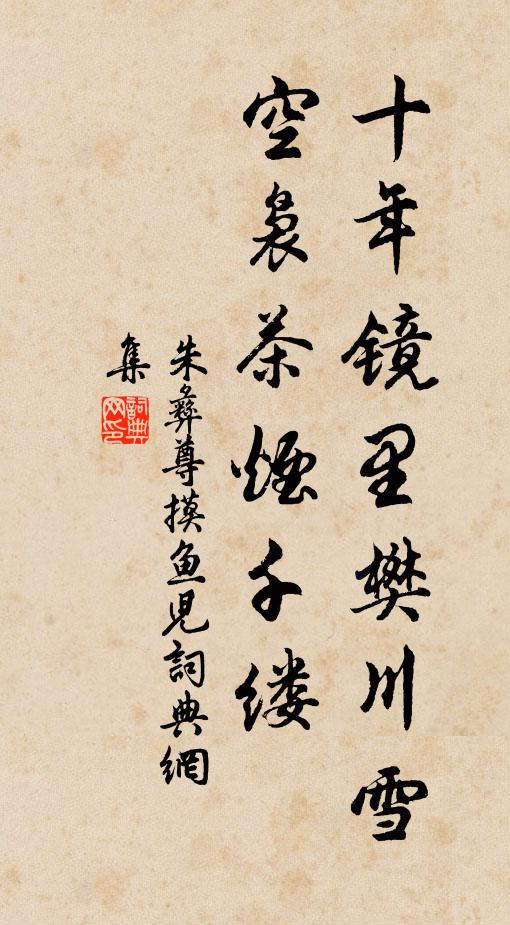 十年镜里樊川雪
空袅茶烟千缕
朱彝尊摸鱼儿詞典網
集
詞典网印